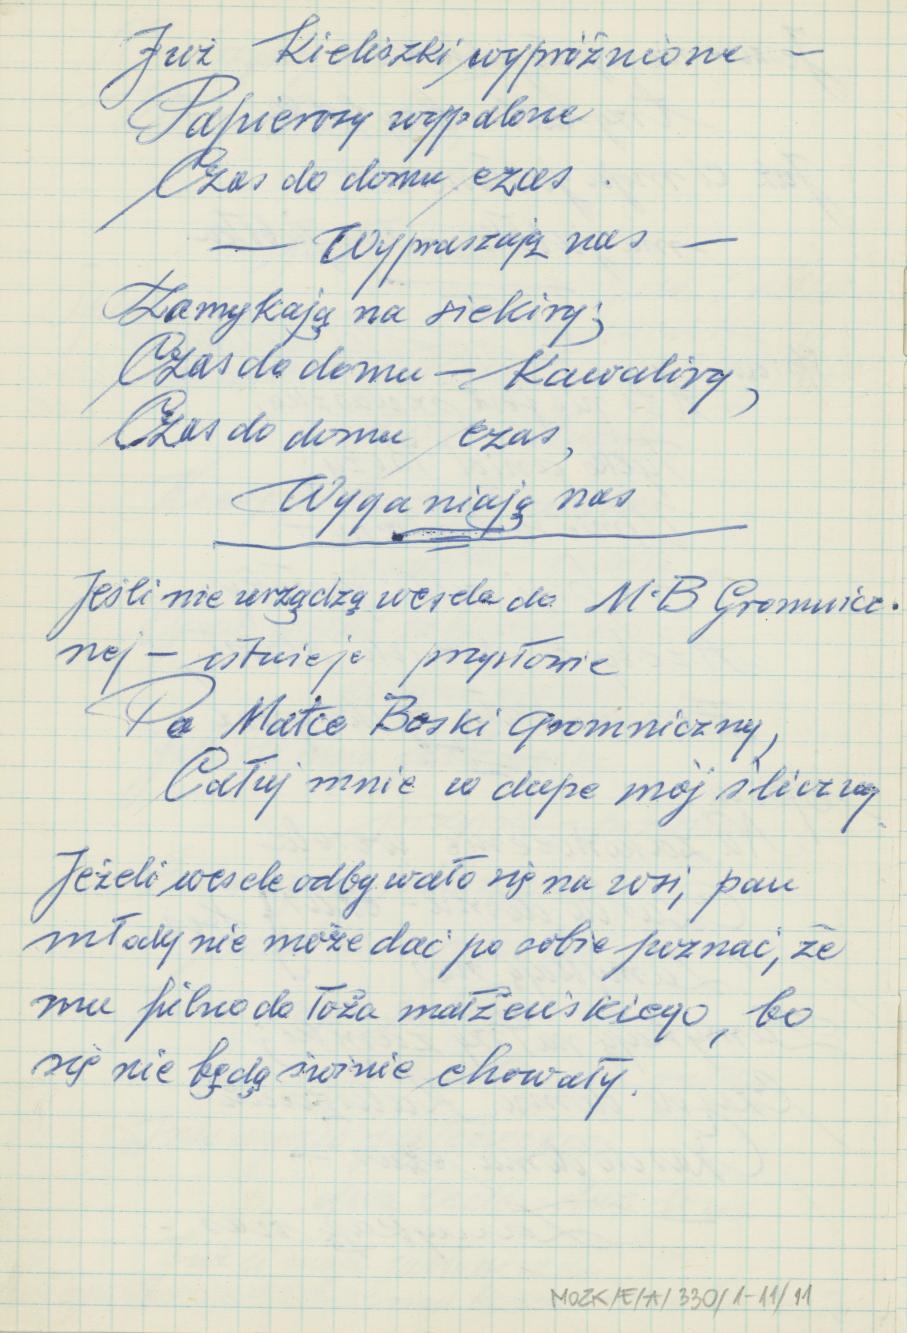 Już Kieliszki wypróżnione —
Papierosy wypalone
Czas do domu czas.
— Wypraszają nas —
Zamykają na siekiry;
Czas do domu — Kawaliry,
Czas do domu czas,
Wyganiają nas
Jeśli nie urządzą wesela do M.B Gromnicz.
nej — istnieje przysłowie
Po Matce Boski Gromniczny,
Całuj mnie w dupe mój śliczny
Jeżeli wesele odbywało się na wsi, pan
młody nie może dać po sobie poznać, że
mu pilno do łoża małżeńskiego, bo
się nie będą świnie chowały.
MOZK/E/A/330/1-11/11